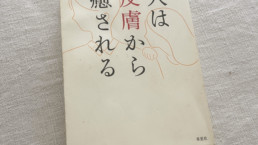 人は
皮膚から
癒される